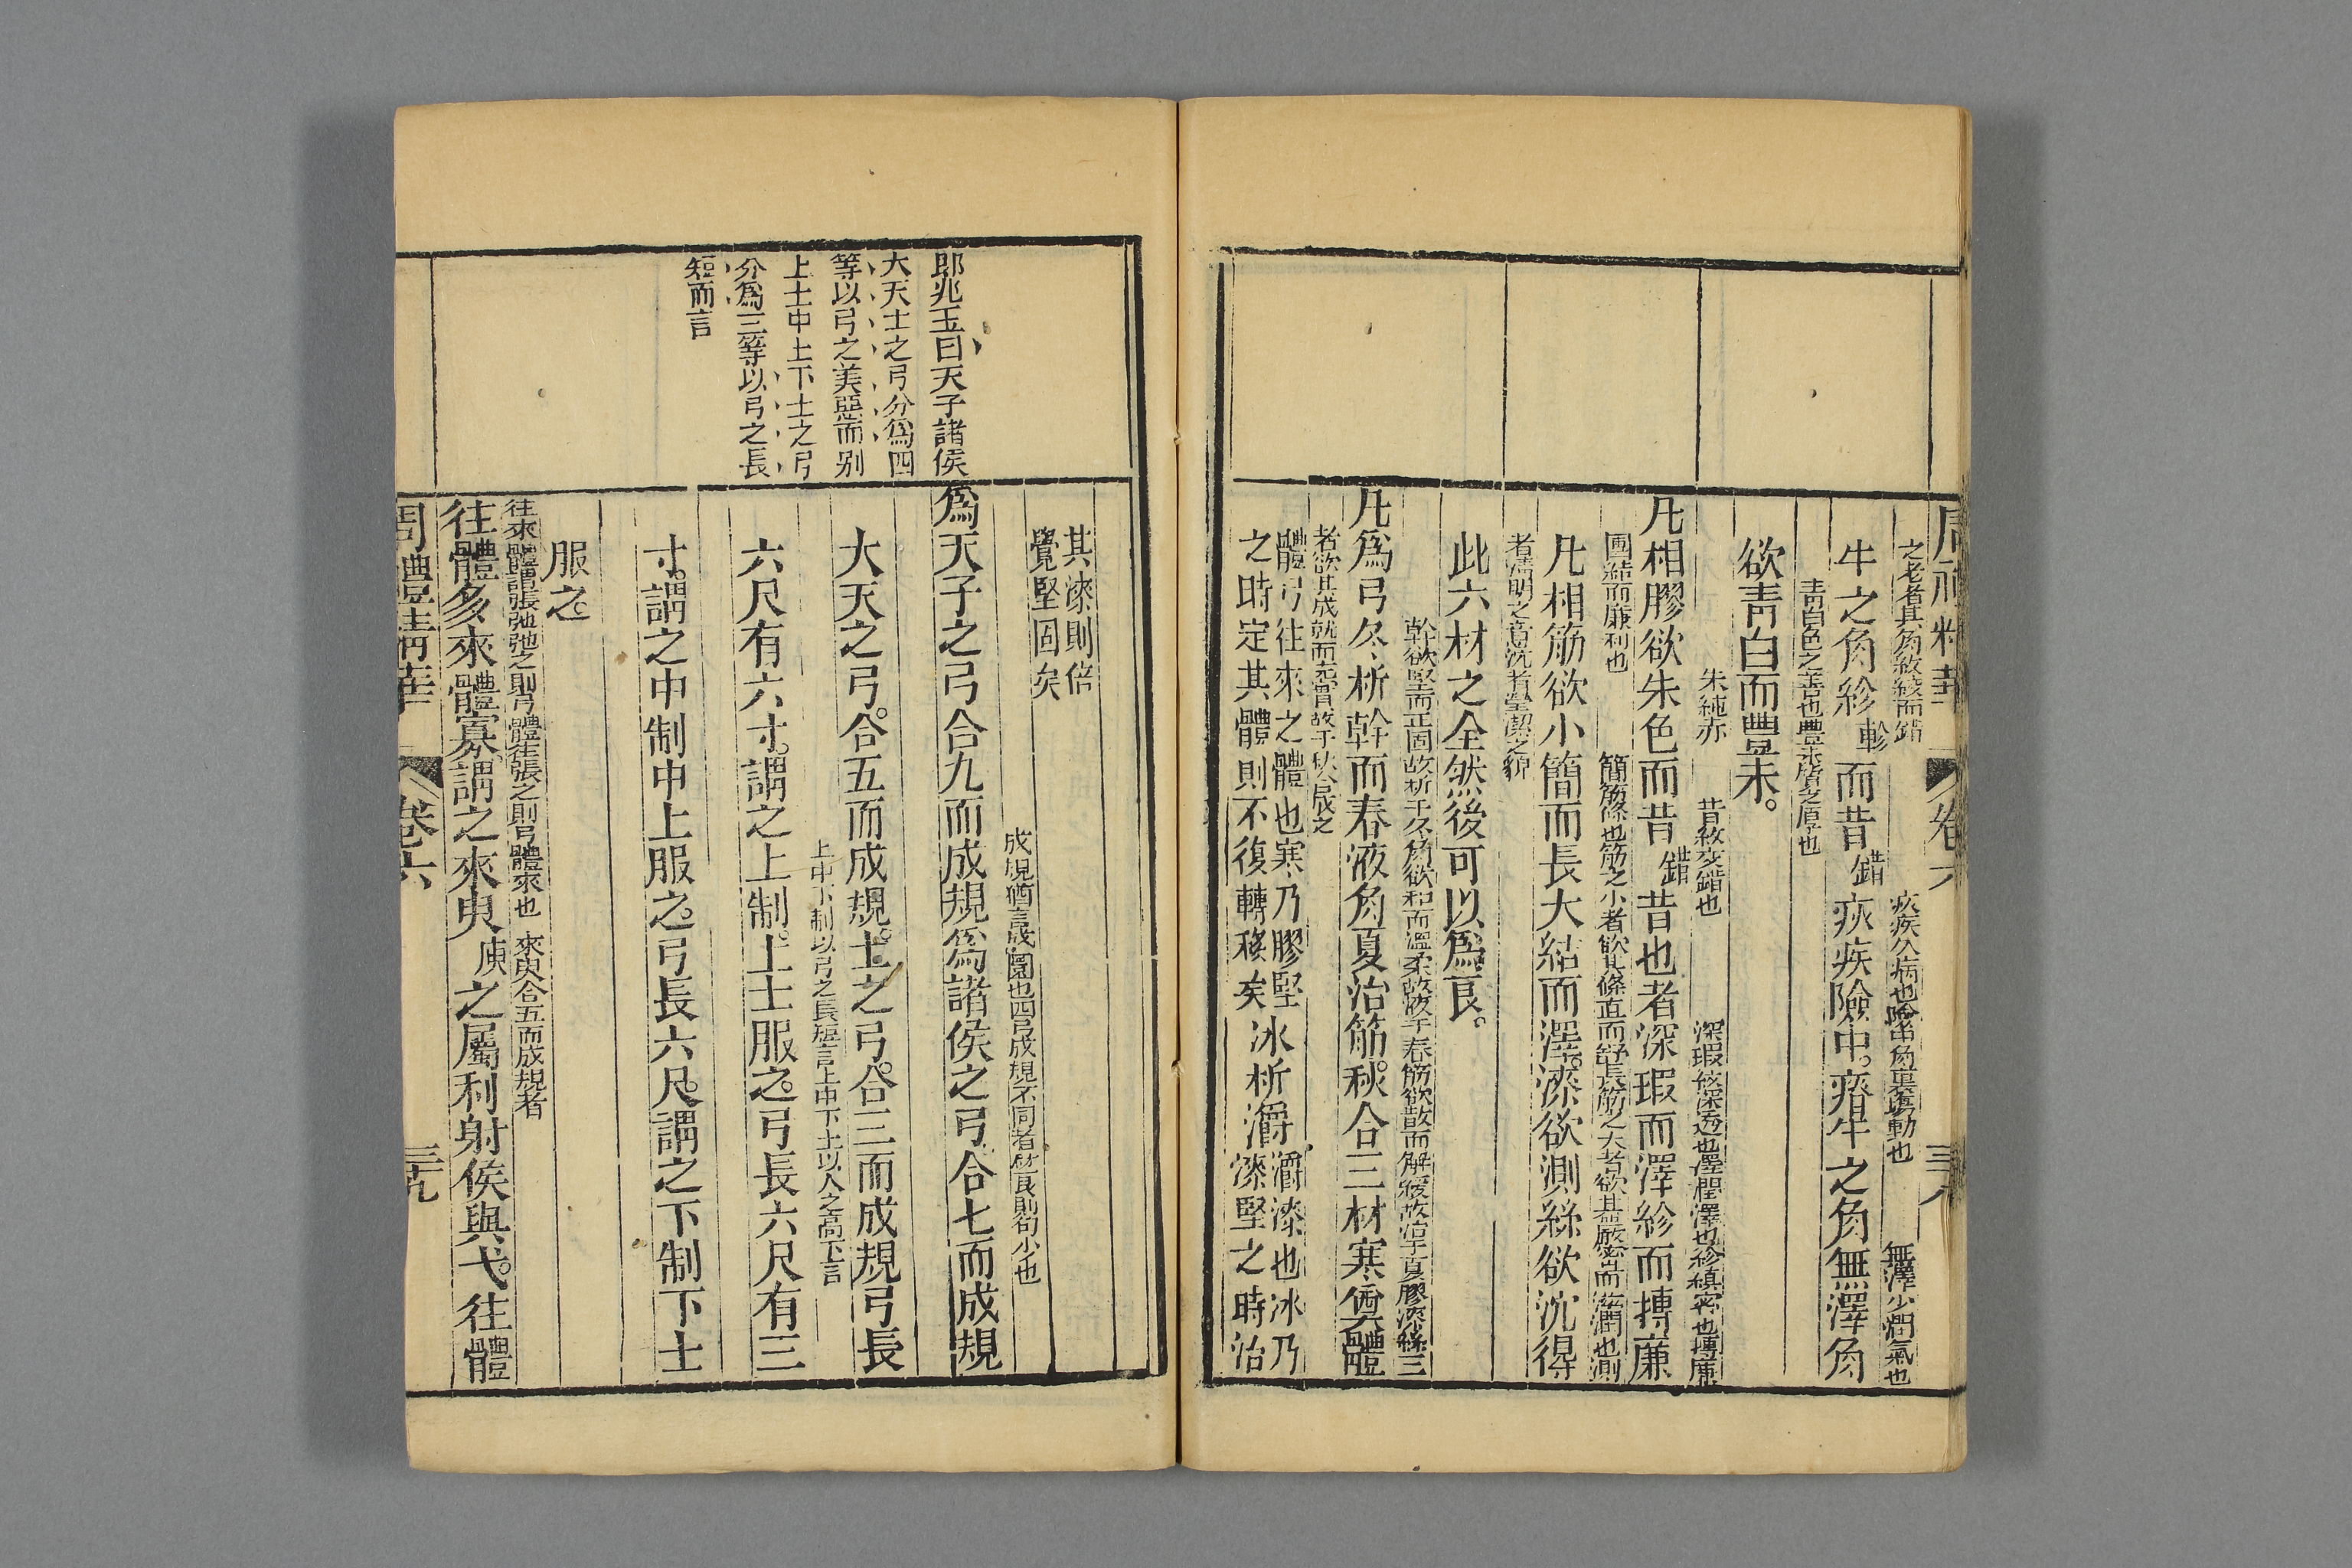 周禮精華　卷六　三八
之老者其角紋絞而錯
牛之角紾軫而昔錯疢疾險中瘠牛之角無澤角
疢疾久病也
無澤少潤氣也
青白色之善也豐末
之厚也
欲靑白而豐末。
朱純赤　昔紋交錯也　深瑕紋深透也澤潤澤也紾縝密也摶廉
凡相膠欲朱色而昔錯昔也者深瑕而澤紾而摶廉
圑結而廉利也　簡筋條也筋之小者欲其條直而舒長筋之大者欲其嚴密而滋潤也測
凡相筋欲小簡而長大結而澤。漆欲測絲欲沈得
者淸明之意沈者瑩潔之貌
此六材之全然後可以爲良。
幹欲堅而正固故析于冬角欲和而溫柔故液于春筋欲散而解緩故治于夏膠漆絲三
凡爲弓冬析幹而春液角夏治筋。秋合三材寒奠體
者欲其成就而完實故于秋合成之
體弓往來之體也寒乃膠堅
之時定其體則不復轉移矣
冰析灂
灂漆也冰乃
漆堅之時治
其漆則倍
覺堅固矣
成規猶言成圜也四弓成規不同者竹良則句少也
爲天子之弓合九而成規爲諸侯之弓合七而成規
大夫之弓。合五而成規。士之弓。合三而成規弓長
上中下制以弓之長短言上中下士以人之高下言
六尺有六寸。謂之上制。上士服之。弓長六尺有三
寸。謂之中制中上服之。弓長六尺。謂之下制下士
服之。
往來體謂張弛弛之則弓體往張之則弓體來也　來臾合五而成規者
往體多來體寡。謂之來臾庾之屬利射侯與弋。往體
周禮精華　卷六　三九
郎兆玉曰天子諸侯
大夫士之弓分爲四
等以弓之美惡而別
上士中士下士之弓
分爲三等以弓之長
短而言